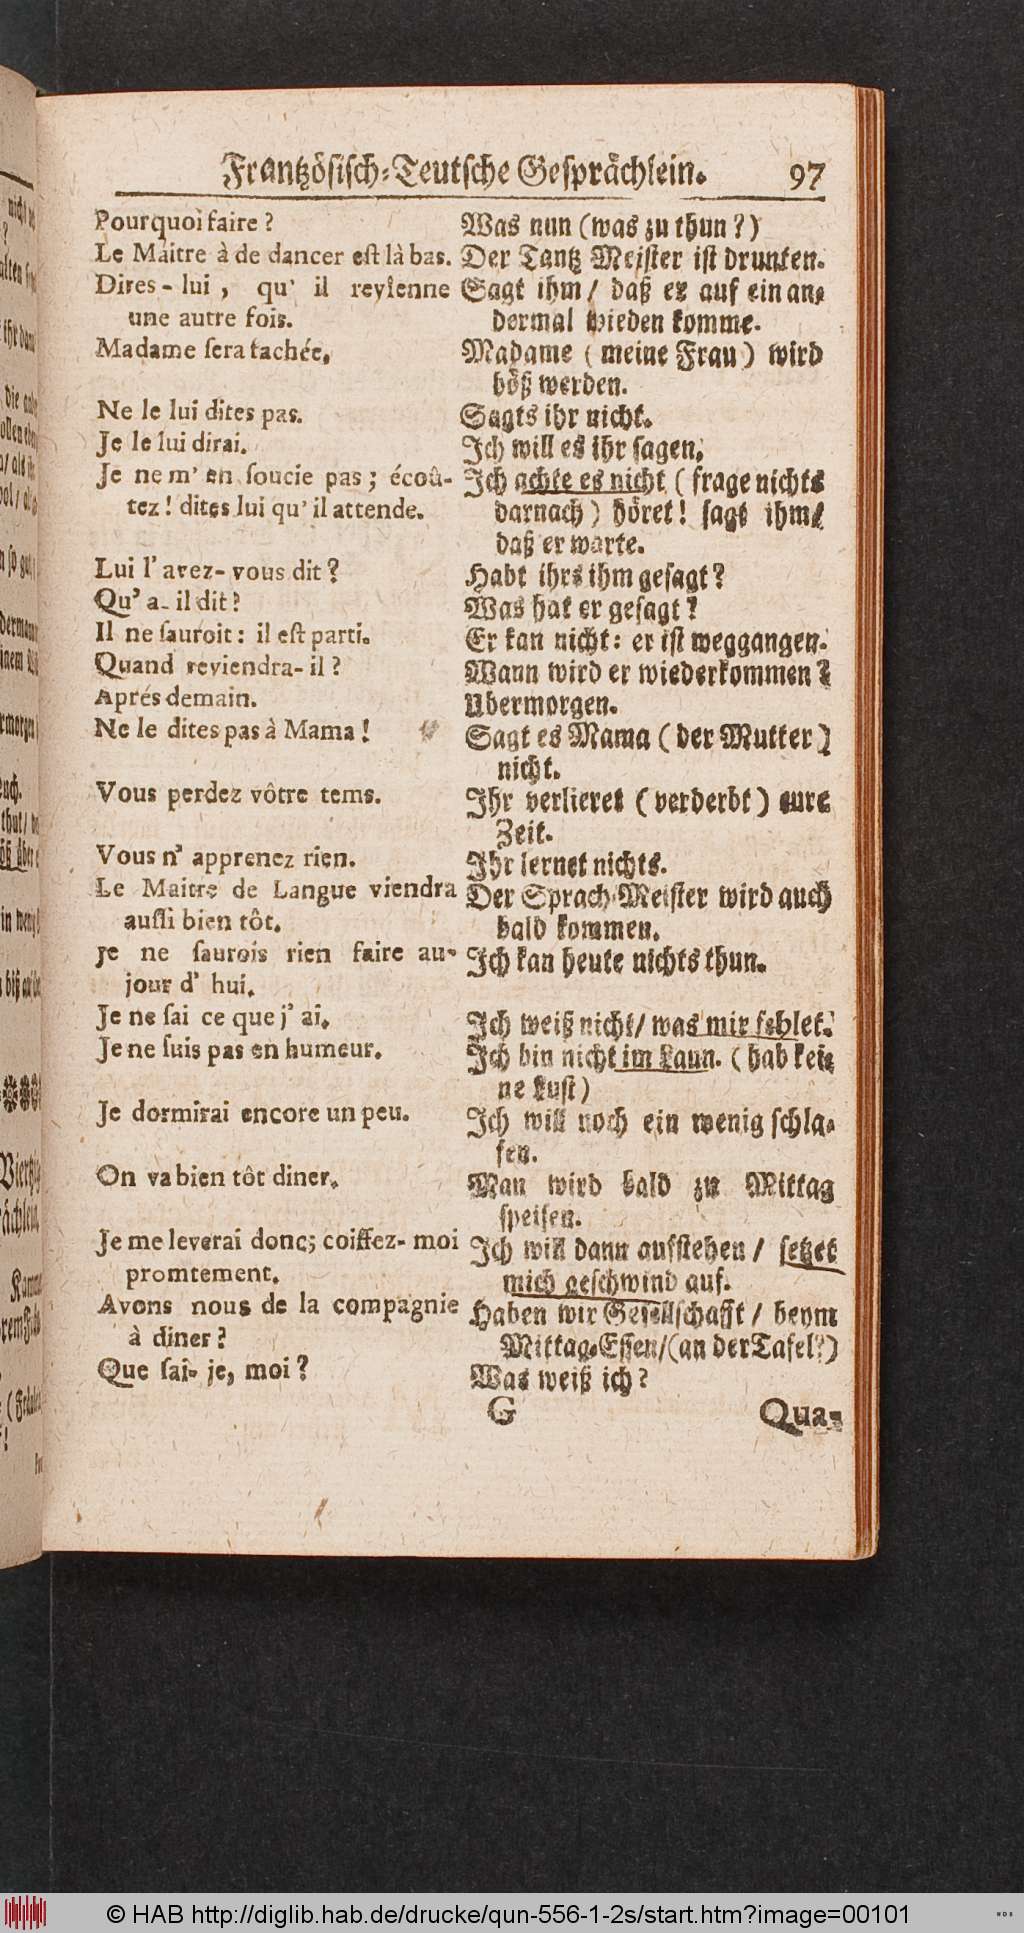 Frantzösisch-Teutsche Gesprächlein. 97
Pourquoi faire?
Le Maitre à de dancer est là bas.
Dires-lui, qu' il revienne
une autre fois.
Madame sera fachée.
Ne le lui dites pas.
Je le lui dirai.
Je ne m' en soucie pas; écoû-
tez! dites lui qu' il attende.
Lui l' avez-vous dit?
Qu' a-il dit?
Il ne sauroit: il est parti.
Quand reviendra-il?
Aprés demain.
Ne le dites pas à Mama!
Vous perdez vôtre tems.
Vous n' apprenez rien.
Le Maitre de Langue viendra
aussi bien tôt.
Je ne saurois rien faire au-
jour d' hui.
Je ne sai ce que j' ai.
Je ne suis pas en humeur.
Je dormirai encore un peu.
On va bien tôt diner.
Je me leverai donc; coiffez-moi
promtement.
Avons nous de la compagnie
à diner?
Que sai-je, moi?
Was nun (was zu thun?)
Der Tantz Meister ist drunten.
Sagt ihm/ daß er auf ein an-
dermal wieden komme.
Madame (meine Frau) wird
böß werden.
Sagts ihr nicht.
Ich will es ihr sagen.
Ich achte es nicht (frage nichts
darnach) höret! sagt ihm/
daß er warte.
Habt ihrs ihm gesagt?
Was hat er gesagt?
Er kan nicht: er ist weggangen.
Wann wird er wiederkommen?
Ubermorgen.
Sagt es Mama (der Mutter)
nicht.
Ihr verlieret (verderbt) eure
Zeit.
Ihr lernet nichts.
Der Sprach-Meister wird auch
bald kommen.
Ich kan heute nichts thun.
Ich weiß nicht/ was mir fehlet.
Ich bin nicht im Laun. (hab kei-
ne Lust)
Ich will noch ein wenig schla-
fen.
Man wird bald zu Mittag
speisen.
Ich will dann aufstehen/ setzet
mich geschwind auf.
Haben wir Gesellschafft/ beym
Mittag-Essen/(an der Tafel?)
Was weiß ich?
G Qua-
© HAB http://diglib.hab.de/drucke/qun-556-1-2s/start.htm?image=00101